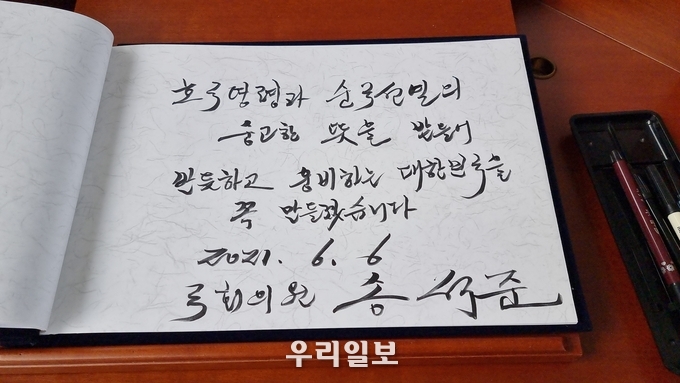 호국영령과 순국선열의
숭고한 뜻을 받들어
반듯하고 웅비하는 대한민국을
꼭 만들겠습니다
2021. 6. 6
국회의원 송석준
우리일보